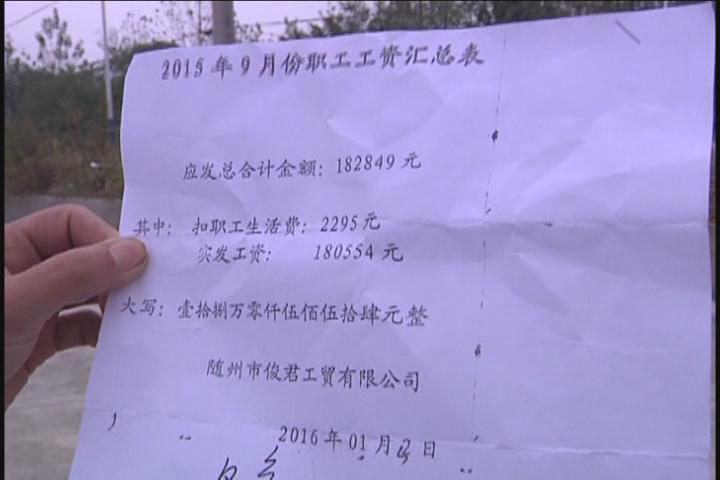 2015年9月份职工工资汇总表
应发总合计金额：182849元
其中：扣职工生活费：2295元
实发工资：180554元
大写：壹拾捌万零仟伍佰伍拾肆元整
随州市俊君工贸有限公司
2016年01月2日